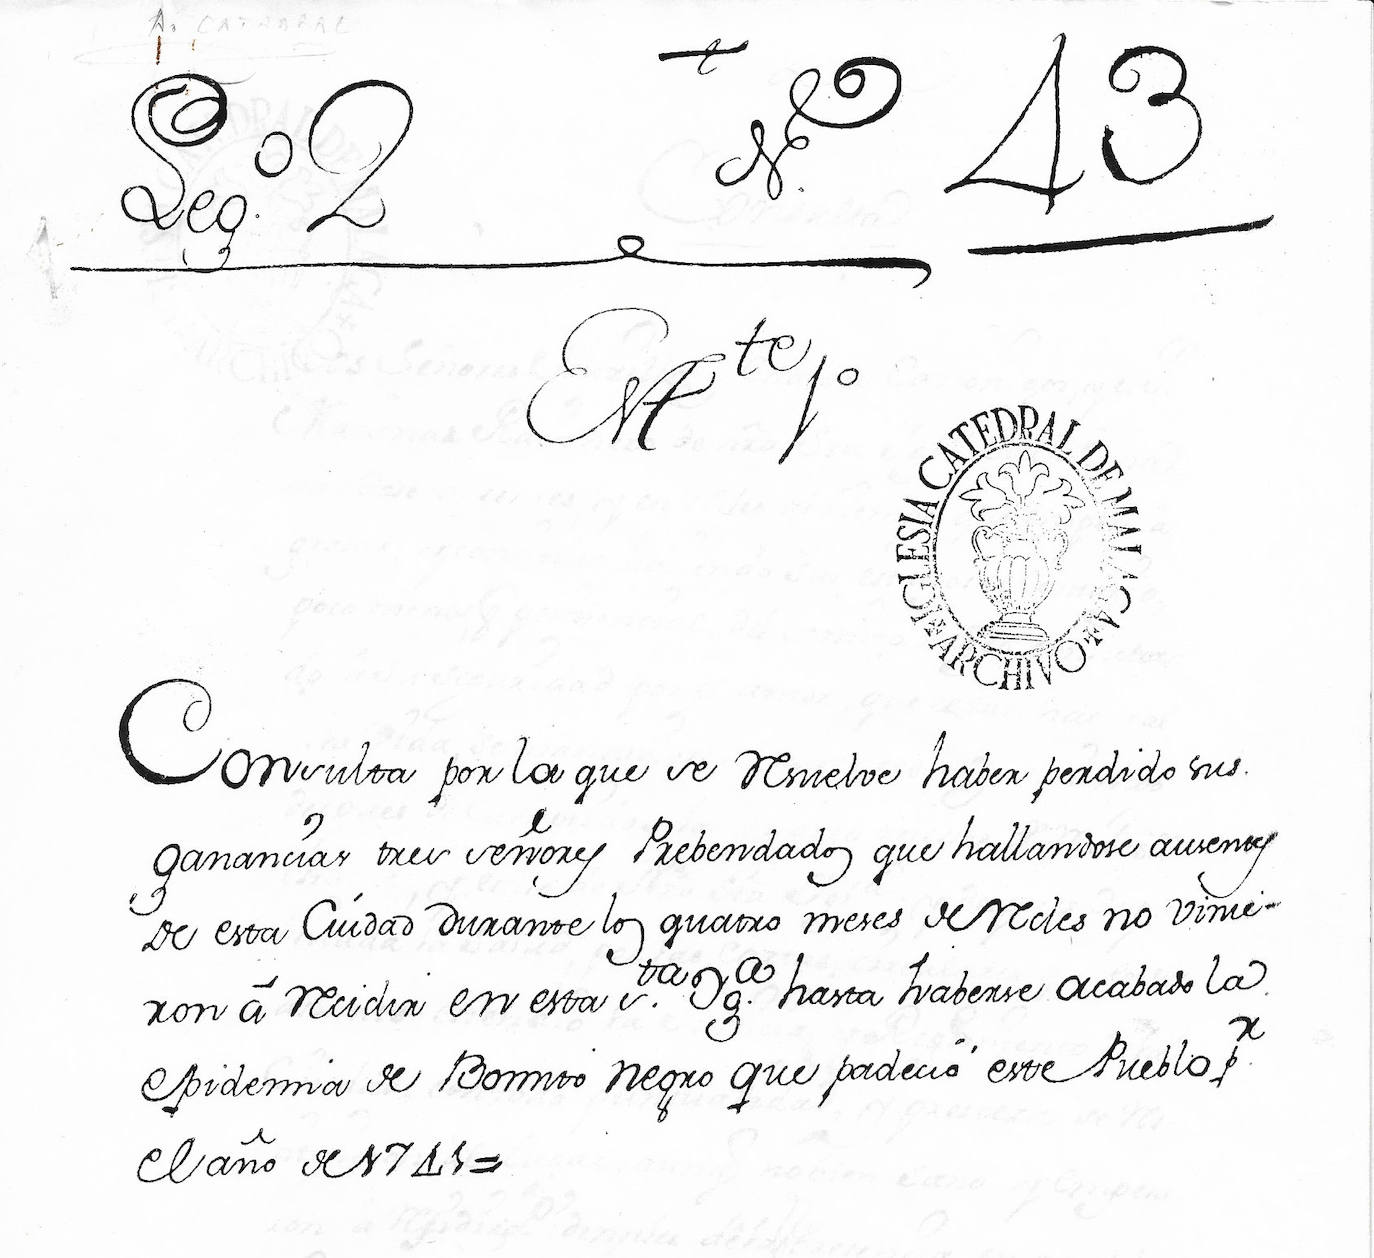 A. CATEDRAL
Leg.º 2 N.º 43
Est.te 1º
IGLESIA CATEDRAL DE MALAGA
ARCHIVO
Consulta por la que se resuelve haber perdido sus
ganancias tres señores Prebendados que hallandose ausentes
de esta Cuidad durante los quatro meses de Recles no vinie-
ron á recidir en esta s.ta Yg.a hasta haberse acabado la
epidemia de Bomito negro que padeció este Pueblo p.r
el año de 1741=